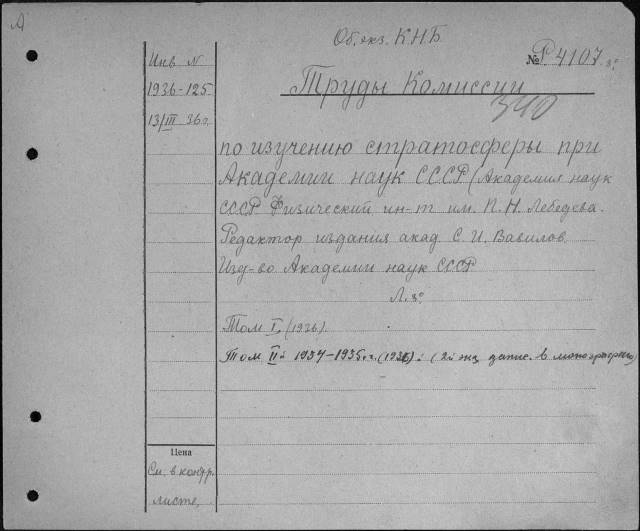 А
Об. экз. КНБ
№ Р. 4107 з°.
Инв N
1936-125
13/III 36 г.
Труды Комиссии
340
по изучению стратосферы при
Академии наук СССР (Академия наук
СССР Физический ин-т им. П. Н. Лебедева.
Редактор издания акад. С. И. Вавилов.
Изд-во Академии наук СССР
Л. з°.
Том I, (1936).
Том II й 1934-1935 г.г. : (2й экз. запис. в монографию)
Цена
См. в контр.
листе,